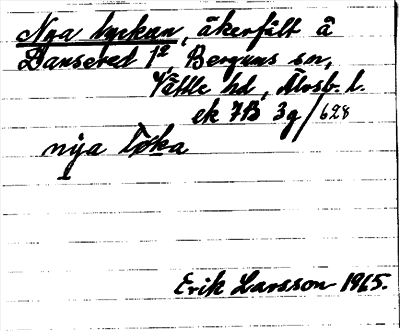 Nya lyckan, åkerfält å
Dansered 1², Bergums sn,
Vättle hd, Älvsb. l.
ek 7B 3g/628
nya lø̀ka
Erik Larsson 1965.